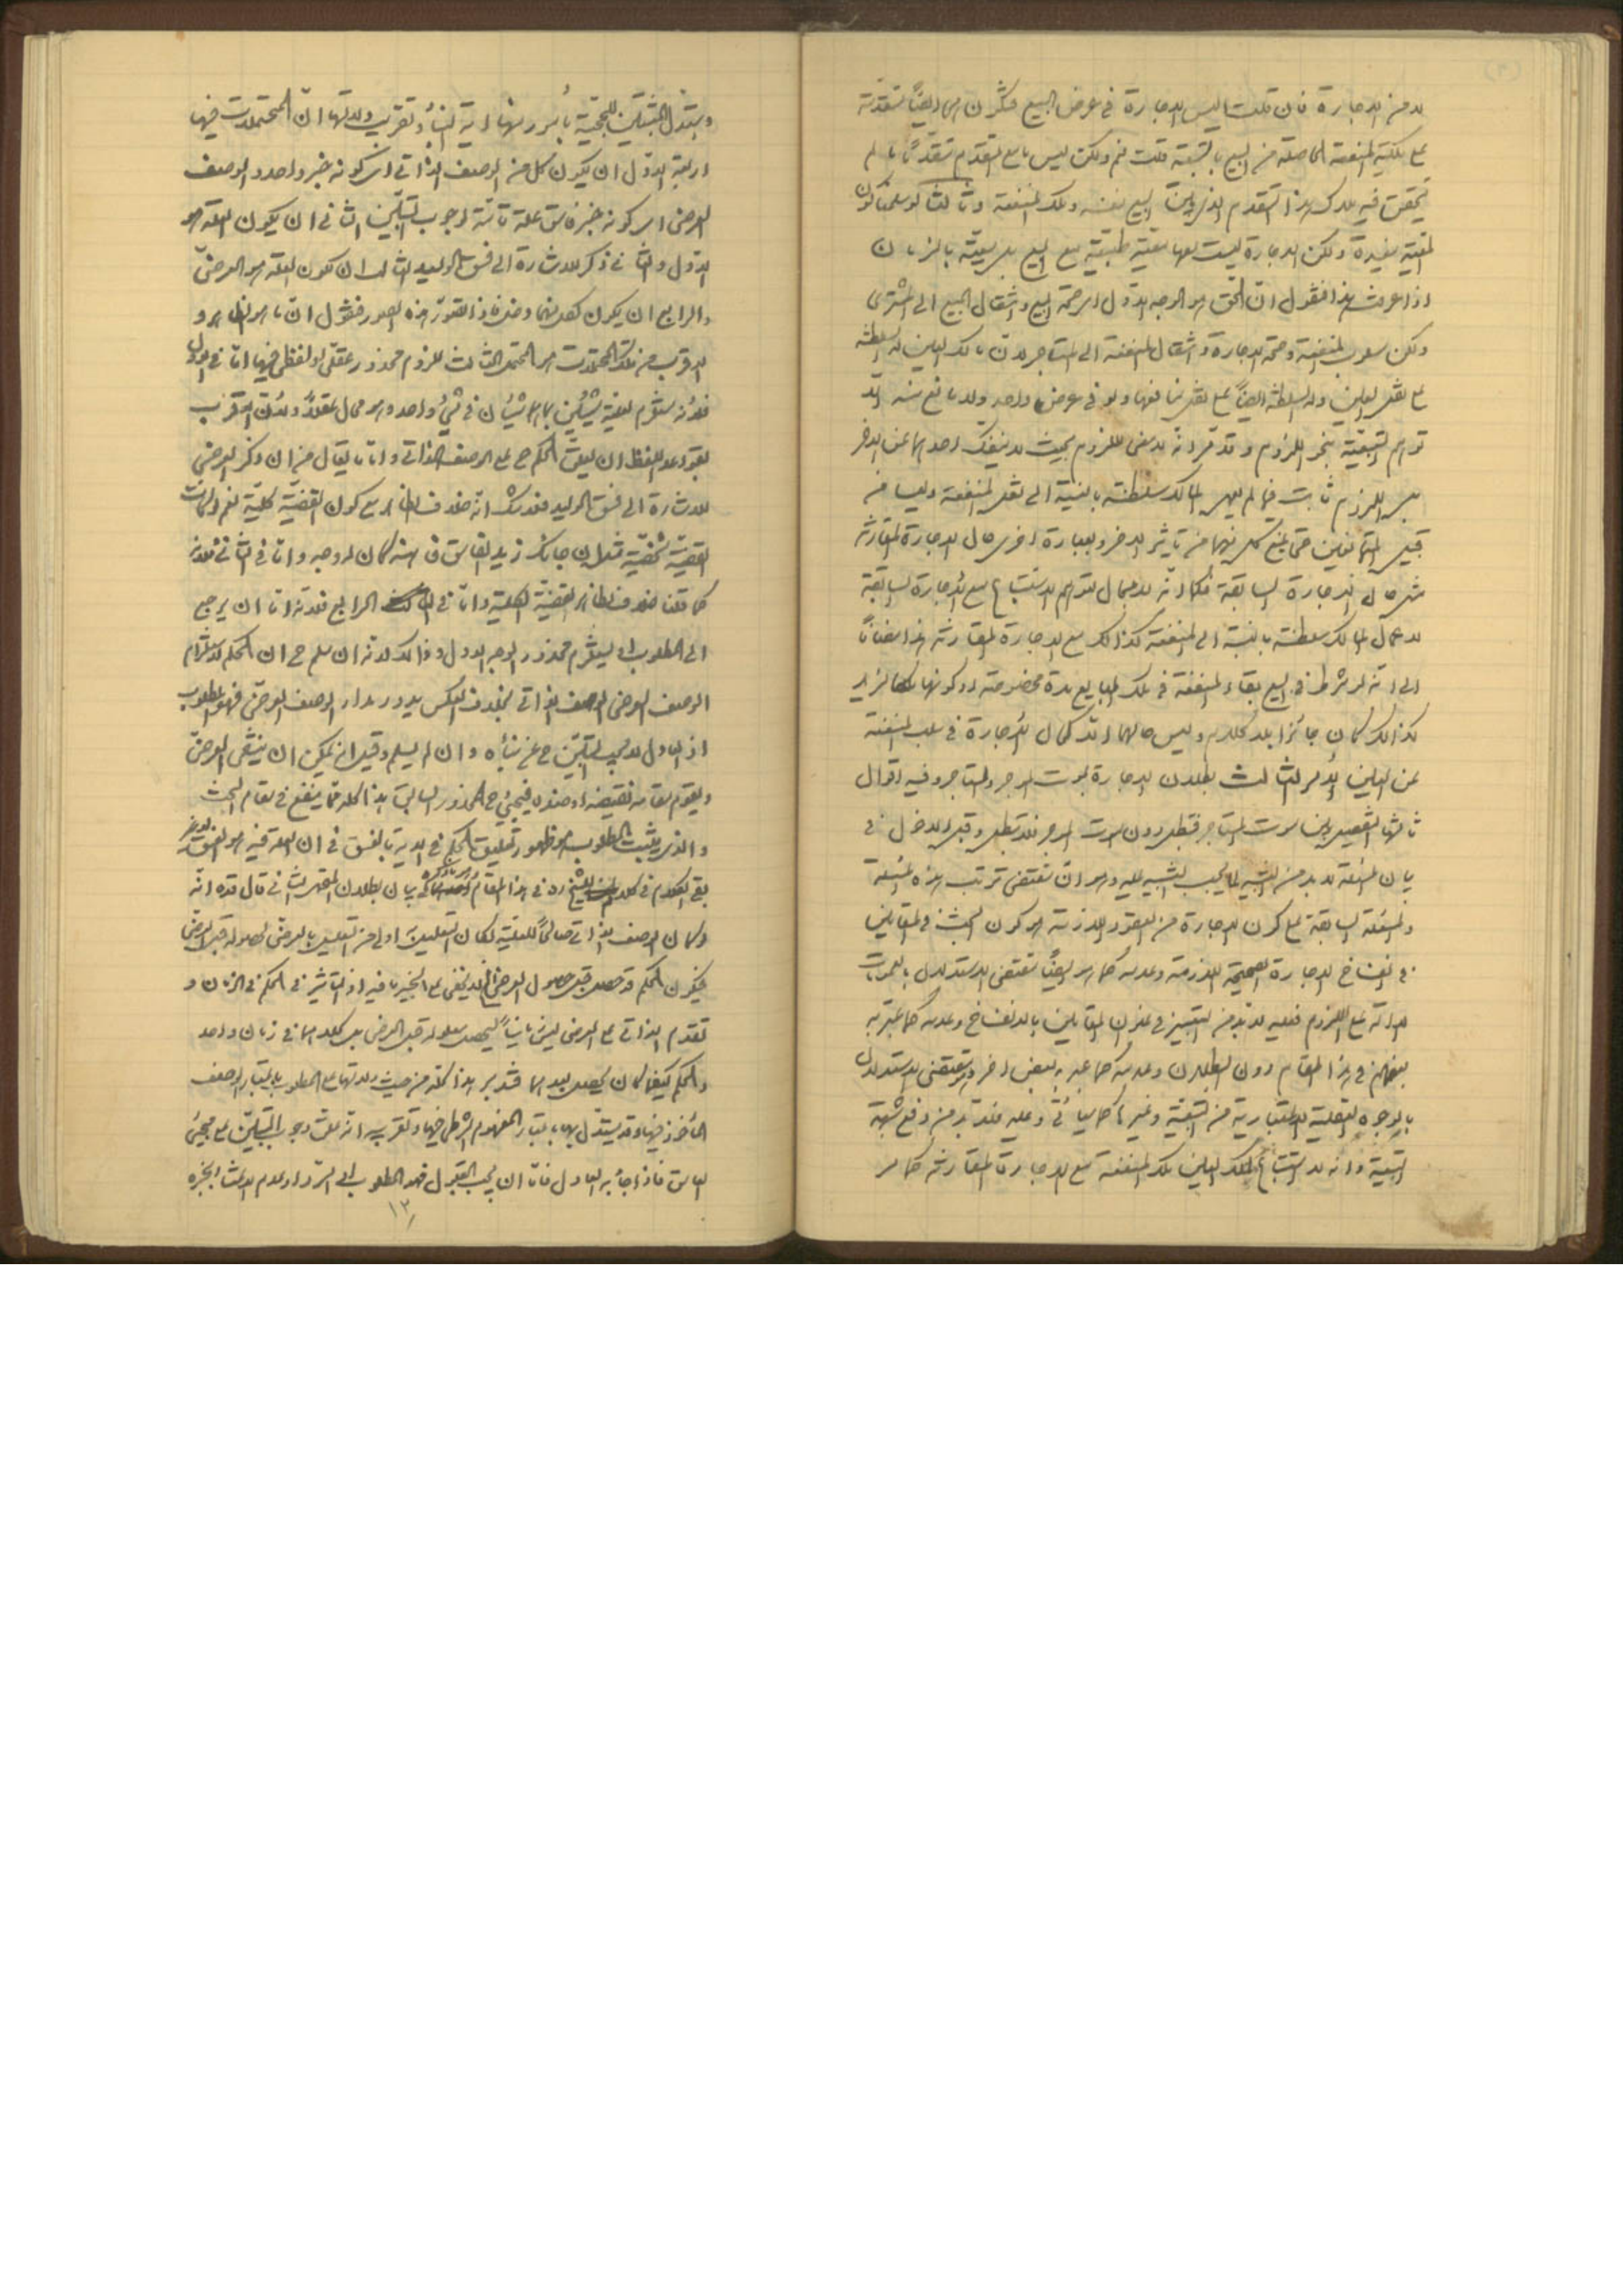 لا من الاجارة فان قلت اليس الاجارة في عرض البيع فتكون هي ايضاً متقدمة
على ملكية المنفعة الحاصلة من البيع بالتبعية قلت نعم ولكن ليس ما مع المتقدم متقدماً ما لم
يتحقق فيه ملاك هذا التقدم الذي بين البيع نفسه وملك المنفعة وثالثا لو سلمنا كون
المعية مفيدة ولكن الاجارة ليست لها معية طبعية مع البيع بل معية بالزمان
اذا عرفت هذا فنقول ان الحق هو الوجه الاول اي صحة البيع وانتقال المبيع الى المشتري
ولكن مسلوب المنفعة وصحة الاجارة وانتقال المنفعة الى المستاجر لان مالك العين له السلطنة
على نقل العين وله السلطنة ايضاً على نقل منافعها ولو في عرض واحد ولا مانع منه الا
توهم التبعية بنحو اللزوم وقد مر انه لا معنى للزوم بحيث لا ينفك احدهما عن الاخر
بل اللزوم ثابت فيما لم يعمل المالك سلطنته بالنسبة الى نقل المنفعة وليسا من
قبيل المتمانعين حتى يمنع كل منهما من تاثير الاخر وبعبارة اخرى حال الاجارة المقارنة
مثل حال الاجارة السابقة فكما انه لا مجال لتوهم الاستتباع مع الاجارة السابقة
لاعمال المالك سلطنته بالنسبة الى المنفعة كذالك مع الاجارة المقارنة هذا مضافاً
الى انه لو شرط في البيع بقاء المنفعة في ملك البايع مدة مخصوصة او كونها ملكا لزيد
كذالك لكان جائزا بلا كلام وليس حالهما الا كحال الاجارة في سلب المنفعة
عن العين الامر الثالث بطلان الاجارة بموت الموجر والمستاجر وفيه اقوال
ثالثها التفصيل بين موت المستاجر فتبطل دون موت الموجر فلا تبطل وقبل الدخول في
بيان المسئلة لا بد من التنبيه لما يجب التنبيه عليه وهو ان مقتضى ترتب هذه المسئلة
والمسئلة السابقة على كون الاجارة من العقود اللازمة هو كون البحث في المقامين
في انفساخ الاجارة الصحيحة اللازمة وعدمه كما هو ايضاً مقتضى الاستدلال بالعمومات
الدالة على اللزوم فعليه لا بد من التعبير في عنوان المقامين بالانفساخ وعدمه كما عبر به
بعضهم في هذا المقام دون البطلان وعدمه كما عبر به بعض اخر ومقتضى الاستدلال
بالوجوه العقلية الاعتبارية من التبعية وغيرها كما سيأتي وعليه فلا بد من دفع شبهة
التبعية وانه لا استتباع لملك العين ملك المنفعة مع الاجارة المقارنة كما مر
واستدل المثبتين للحجية بأمور منها اية النبأ وتقريب دلالتها ان المحتملات فيها
اربعة الاول ان يكون كل من الوصف الذاتي اي كونه خبر واحد والوصف
العرضي اي كونه خبر فاسق علة تامة لوجوب التبين الثاني ان يكون العلة هو
الاول والثاني ذكر للاشارة الى فسق الوليد الثالث ان يكون العلة هو العرضي
والرابع ان يكون كل منهما وضرة اذا تقور هذه الصور فنقول ان ما هو الظاهر و
الاقرب من تلك المحتملات هو المحتمل الثالث للزوم محذور عقلي او لفظي في غيرها اما في الاول
فلأنه يستلزم لعلية شيئين بما هما شيئان في شيء واحد وهو محال عقلاً ولأن الاقرب
بقواعد اللفظ ان يعلق الحكم ح على الوصف الذاتي واما ما يقال من ان ذكر العرضي
للاشارة الى فسق الوليد فلا شك انه خلاف الظاهر مع كون القضية كلية نعم لو كانت
القضية شخصية مثل ان جائك زيد الفاسق فاهنه لكان له وجه واما في الثاني فلانه
كما قلنا خلاف الظاهر القضية الكلية واما في الرابع فلانه اما ان يرجع
الى المطلوب او يستلزم محذور الوجه الاول وذالك لانه ان سلم ح ان الحكم لاستلزام
الوصف العرضي الوصف الذاتي بخلاف العكس يدور مدار الوصف العرضي فهو المطلوب
اذ العادل لا يجب التبين ح عن نبأه وان لم يسلم وقيل انه يمكن ان ينتفي العرضي
ويقوم مقامه نقيضه او ضده فيجيئ ح المحذور السابق هذا كله مما ينفع في مقام البحث
والذي يثبت المطلوب هو ظهور تعليق الحكم في الاية بالفسق في ان العلة فيه هو الفسق لا غير
بقي الكلام في كلام الشيخ ره في هذا المقام بيان بطلان القسم الثاني قال قده انه
لو كان الوصف الذاتي صالحاً للعلية لكان التعليق اولى من التعليق بالعرضي لحصوله قبل العرضي
فيكون الحكم قد حصل قبل حصول العرضي الخ لا يخفى على الخبير ما فيه اذ التاثير في الحكم في الزمان و
تقدم الذاتي على العرضي ليس زمانياً ليحصل معلوله قبل العرضي بل كلاهما في زمان واحد
والحكم كيفما كان يحصل بعدهما فتدبر هذا كله من حيث دلالتها على المطلوب باعتبار الوصف
المأخوذ فيها وقد يستدل بها باعتبار المفهوم الشرطي فيها وتقريبه انه علق وجوب التبين على مجيئ
الفاسق فاذا جاء به العادل فاما ان يجب القبول فهو المطلوب او الرد او عدم الاعتناء بخبره
١٣